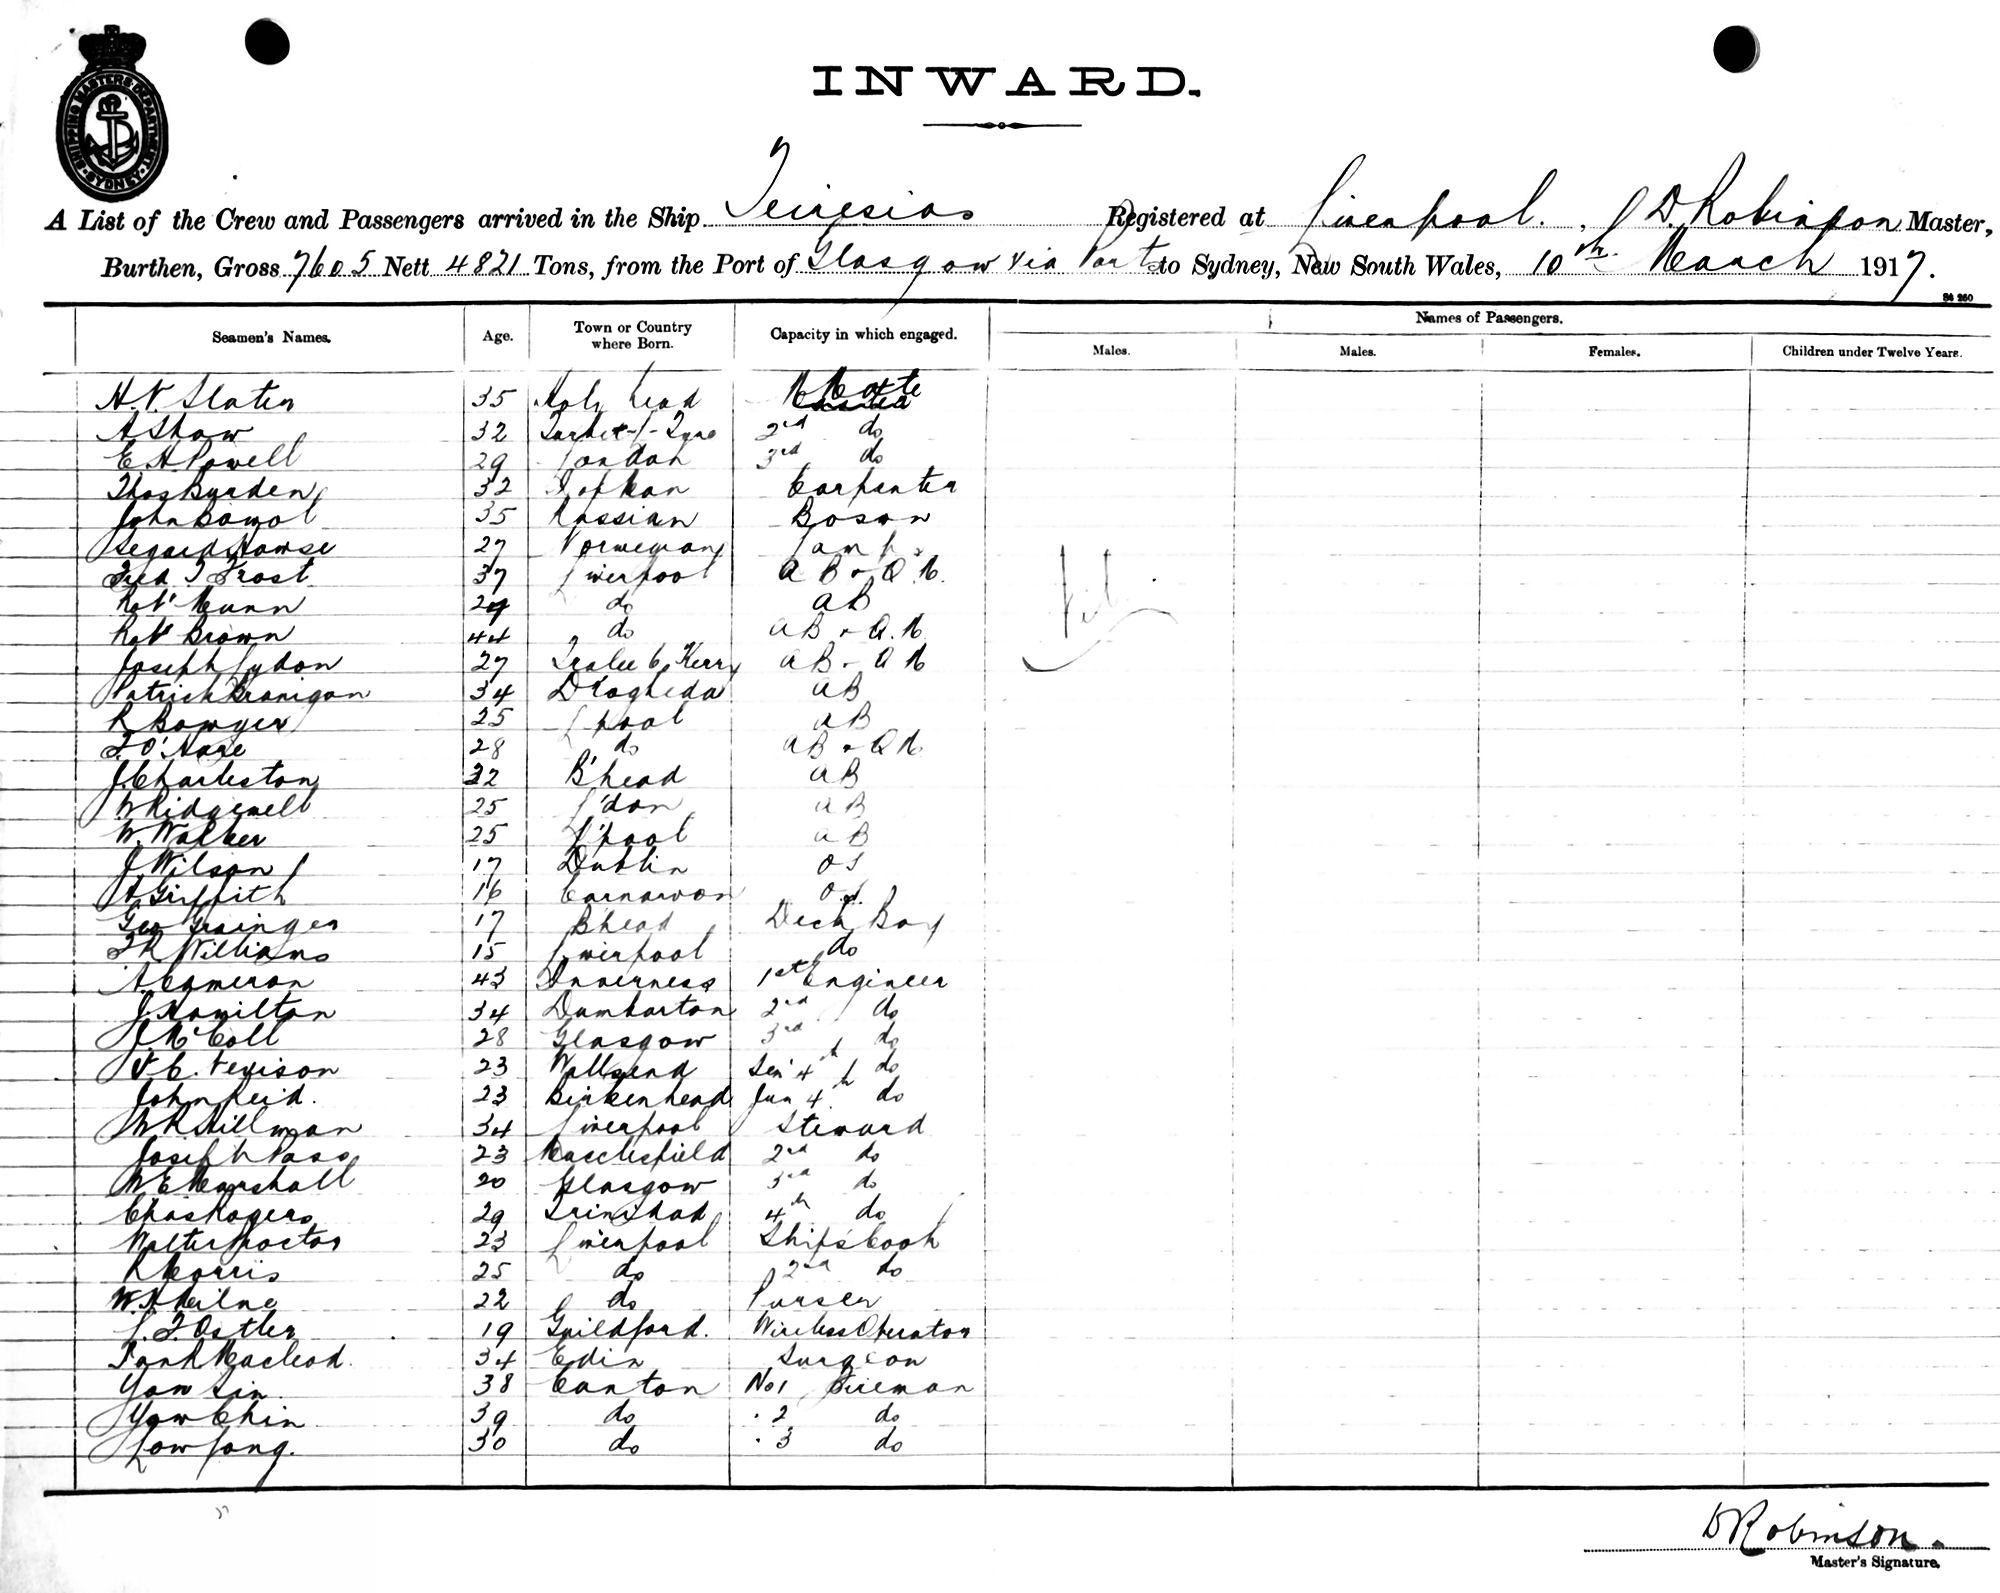 SHIPPING MASTERS DEPARTMENT SYDNEY
INWARD.
A List of the Crew and Passengers arrived in the Ship Teiresias Registered at Liverpool. D. Robinson Master,
Burthen, Gross 7605 Nett 4821 Tons, from the Port of Glasgow via Ports to Sydney, New South Wales, 10th March 1917.
Seamen's Names. Age. Town or Country where Born. Capacity in which engaged. Names of Passengers.
Males. Males. Females. Children under Twelve Years.
H.V. Slater 35 Holy head Mate
A Shaw 32 2nd do
E. H Powell 29 London 3rd do
Thos Burden 32 Carpenter
John 35 Russian Bosan
27 Norwegian Lamps
Fred T Frost 37 Liverpool AB & Q.M.
Robt Munn 29 do AB
Robt Brown 44 do AB & Q.M.
Joseph Lydon 27 Tralee C. Kerry AB & QM
Patrick Branigan 34 Drogheda AB
R Bowyer 25 L'pool AB
T. O'Hare 28 do AB & QM
J. Charleston 32 B'head AB
W Ridgewell 25 L'don AB
W. Walker 25 L'pool AB
J Wilson 17 Dublin OS
A Griffith 16 Carnarvon OS
Geo Grainger 17 Bhead Deck Boy
T R Williams 15 Liverpool do
A. Cameron 43 Inverness 1st Engineer
J. Hamilton 34 Dumbarton 2nd do
J. McColl 28 Glasgow 3rd do
V C. Nevison 23 Wallsend Sen 4th do
John Reid. 23 Birkenhead Jun 4th do
W R Hillman 34 Liverpool Steward
Joseph Pass 23 Macclesfield 2nd do
W E Marshall 20 Glasgow 3rd do
Chas Rogers 29 Trinidad 4th do
Walter Proctor 23 Liverpool Ships Cook
R Morris 25 do 2nd do
W. H Milne 22 do Purser
L. T. Ostler 19 Guildford. Wireless Operator
Macleod. 34 Edin Surgeon
Yow Sin 38 Canton No 1 Fireman
Yow Chin 39 do 2 do
Low Long. 30 do 3 do
D Robinson.
Master's Signature.